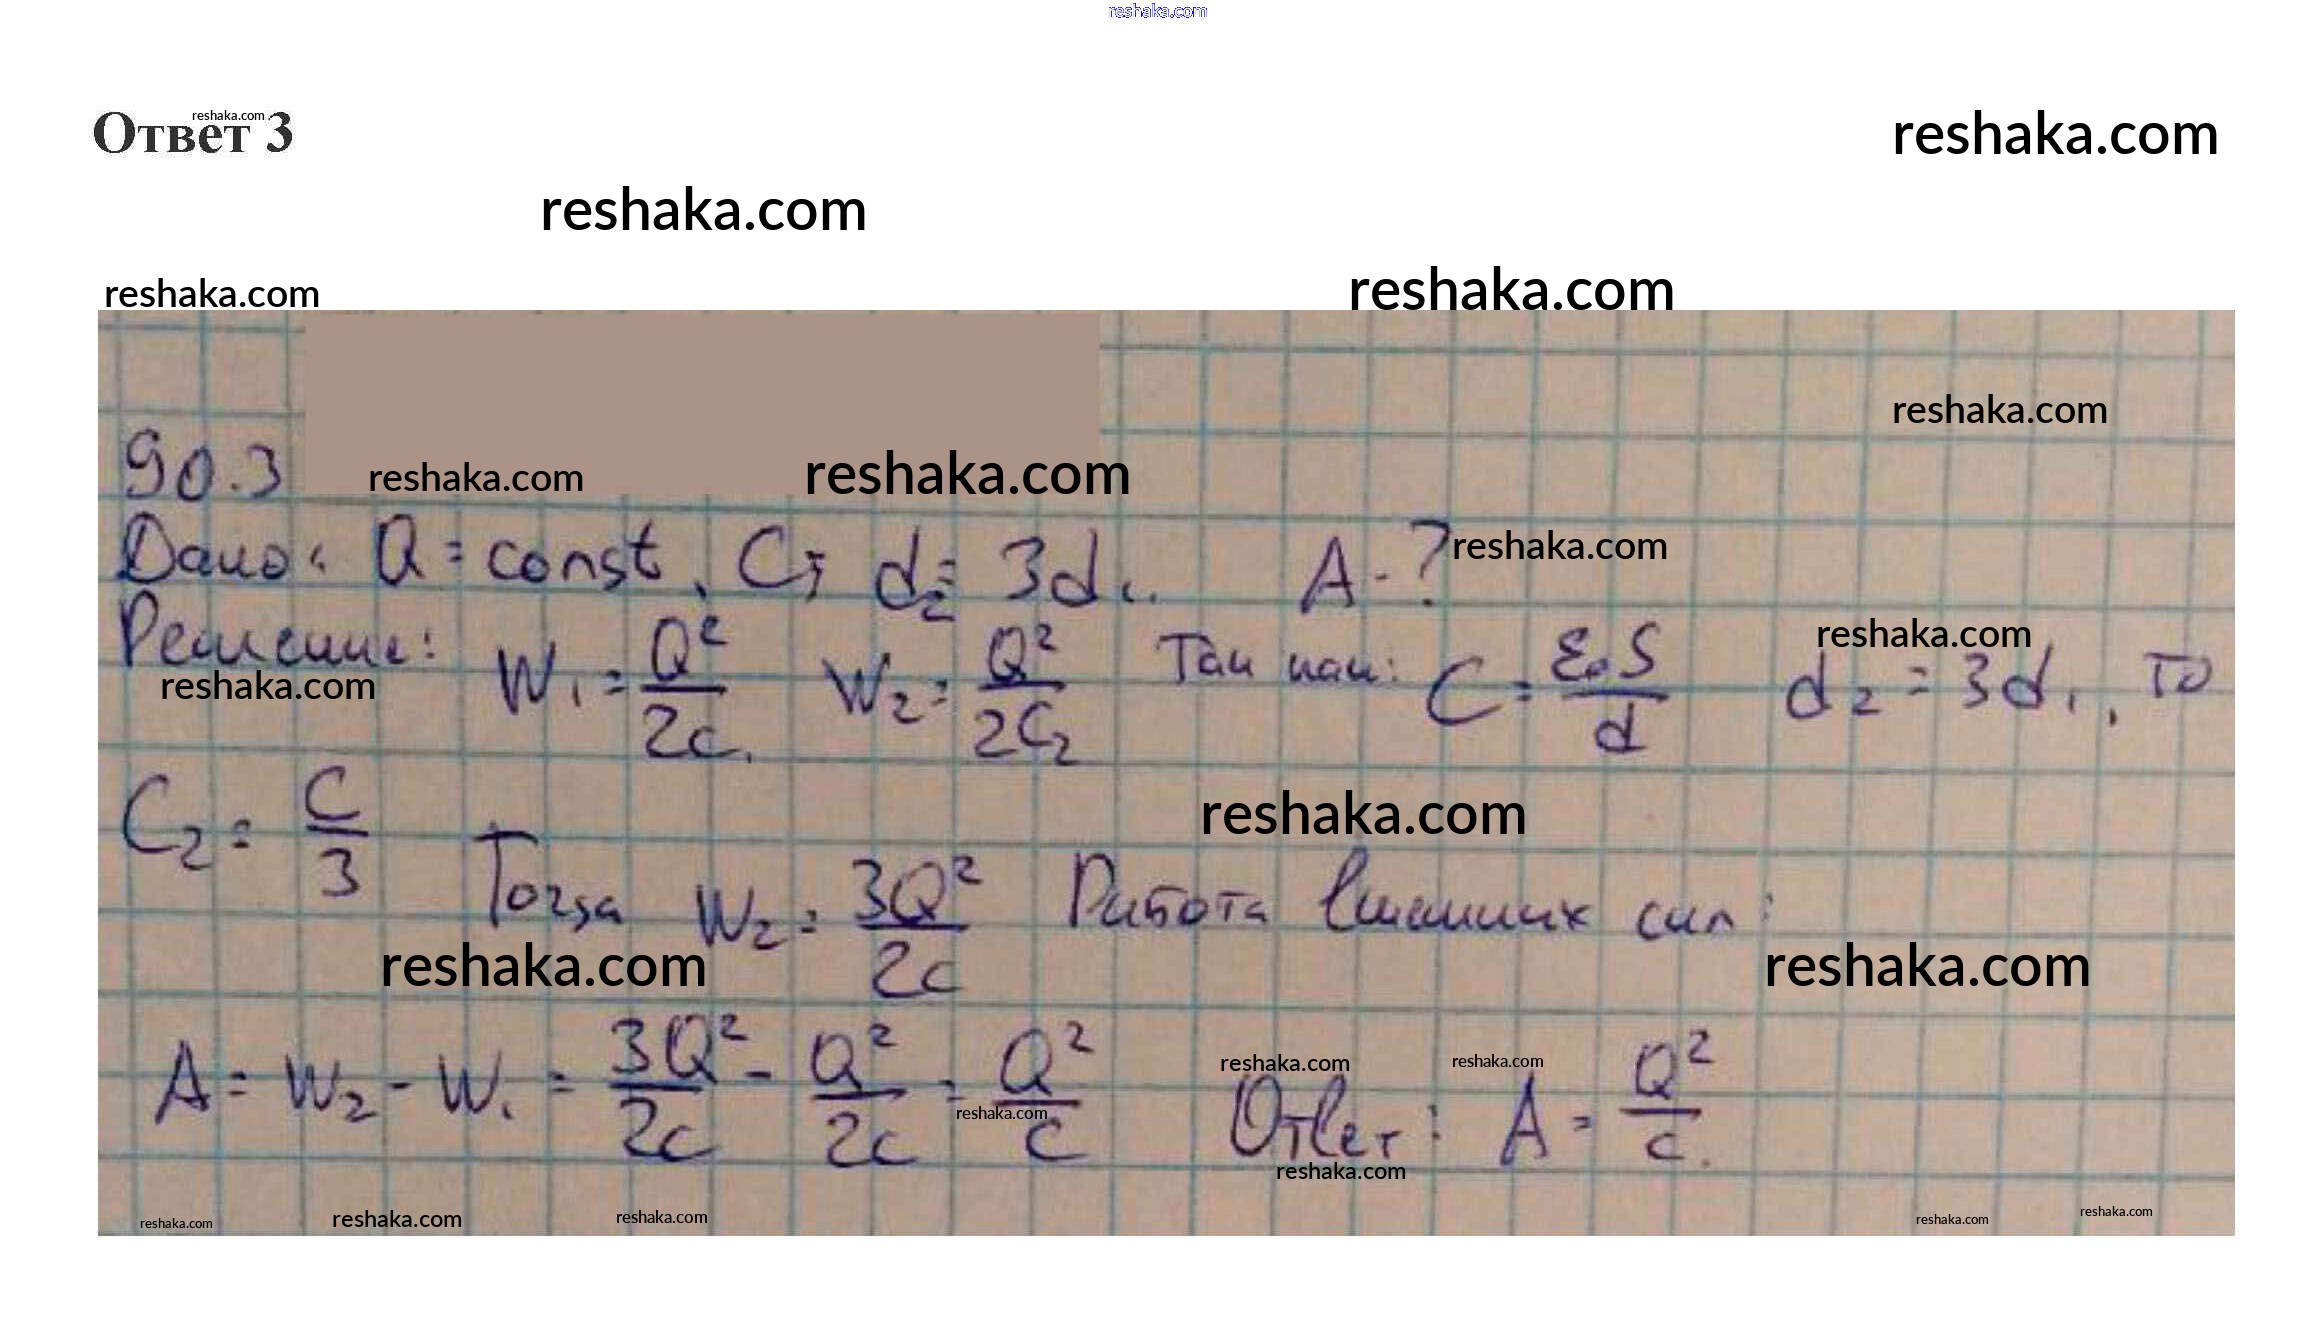 reshaka.com
Ответ 3
reshaka.com
reshaka.com
reshaka.com
reshaka.com
reshaka.com
reshaka.com
90.3
reshaka.com
reshaka.com
Дано: Q = const, C; d₂ = 3d₁. A - ?
reshaka.com
Решение: W₁ = Q²/2c, W₂ = Q²/2C₂ Так как: C = ε₀S/d d₂ = 3d₁, то
reshaka.com
reshaka.com
C₂ = C/3 Тогда W₂ = 3Q²/2c Работа внешних сил:
reshaka.com
reshaka.com
reshaka.com
A = W₂ - W₁ = 3Q²/2c - Q²/2c = Q²/c Ответ: A = Q²/c.
reshaka.com
reshaka.com
reshaka.com
reshaka.com
reshaka.com
reshaka.com
reshaka.com
reshaka.com
reshaka.com